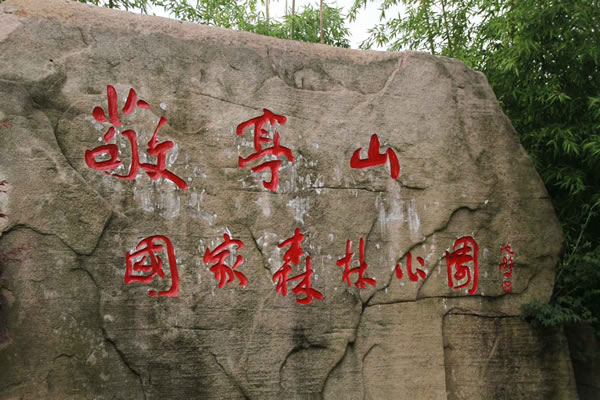 敬亭山
國家森林公園